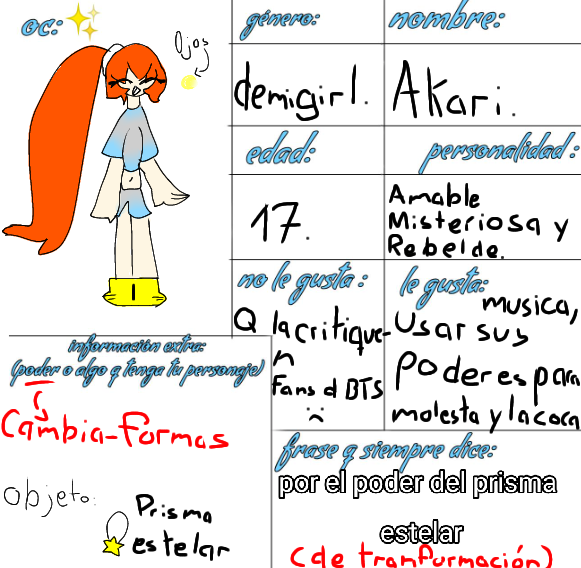 oc:
Ojos
género:
demigirl.
nombre:
Akari.
edad:
17.
personalidad:
Amable
Misteriosa y
Rebelde.
no le gusta:
Q la critique-
n
Fans d BTS
le gusta:
musica,
Usar sus
Poderes para
molesta y la coca
información extra:
(poder o algo q tenga tu personaje)
Cambia-Formas
objeto:
Prisma
estelar
frase q siempre dice:
por el poder del prisma
estelar
(de tranformación)